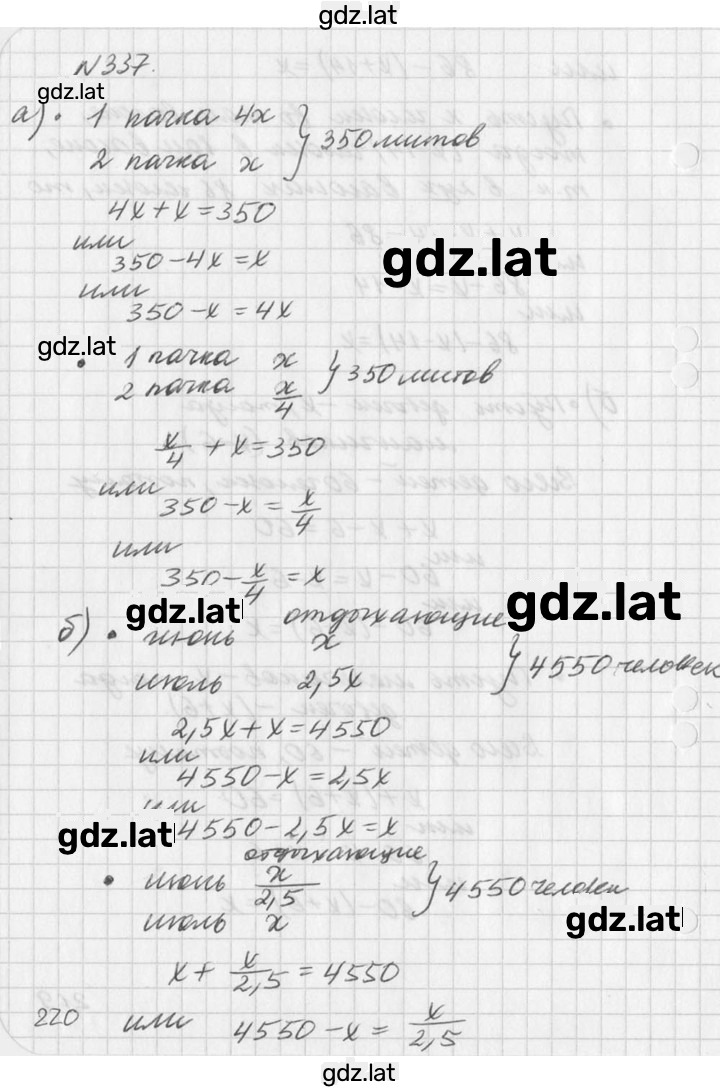 gdz.lat
N 337.
gdz.lat
а) • 1 пачка 4x
2 пачка x } 350 листов
4x + x = 350
или
350 - 4x = x
gdz.lat
или
350 - x = 4x
gdz.lat
• 1 пачка x
2 пачка x/4 } 350 листов
x/4 + x = 350
или
350 - x = x/4
или
350 - x/4 = x
gdz.lat
gdz.lat
отдыхающие
б) • июнь x
июль 2,5x } 4550 человек
2,5x + x = 4550
или
4550 - x = 2,5x
или
gdz.lat
4550 - 2,5x = x
отдыхающие
• июнь x/2,5
июль x } 4550 человек
gdz.lat
x + x/2,5 = 4550
220
или 4550 - x = x/2,5
gdz.lat